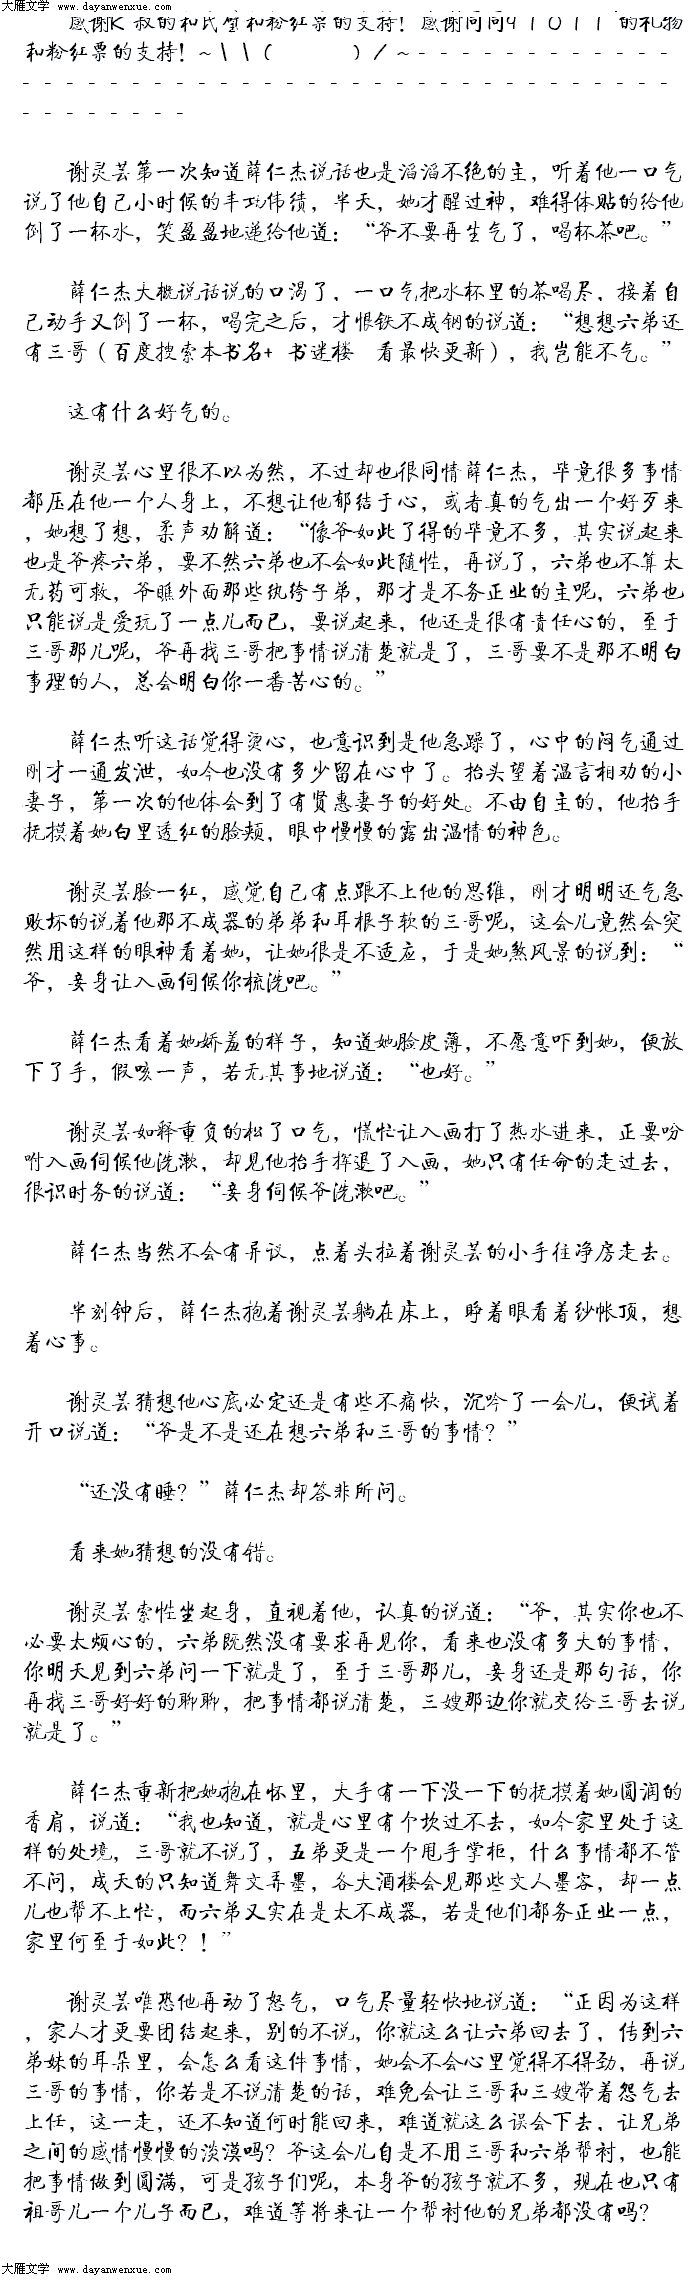 大雁文学 www.dayanwenxue.com
感谢K 叔的和氏璧和粉红票的支持！感谢问问９１０１１的礼物
和粉红票的支持！～\\（ ）／～- - - - - - - - - - - - - -
- - - - - - - - - - - - - - - - - - - - - - - - - - - - - - - - - - - -
- - - - - - - - -
谢灵芸第一次知道薛仁杰说话也是滔滔不绝的主，听着他一口气
说了他自己小时候的丰功伟绩，半天，她才醒过神，难得体贴的给他
倒了一杯水，笑盈盈地递给他道：“爷不要再生气了，喝杯茶吧。”
薛仁杰大概说话说的口渴了，一口气把水杯里的茶喝尽，接着自
己动手又倒了一杯，喝完之后，才恨铁不成钢的说道：“想想六弟还
有三哥（百度搜索本书名+ 书迷楼 看最快更新），我岂能不气。”
这有什么好气的。
谢灵芸心里很不以为然，不过却也很同情薛仁杰，毕竟很多事情
都压在他一个人身上，不想让他郁结于心，或者真的气出一个好歹来
，她想了想，柔声劝解道：“像爷如此了得的毕竟不多，其实说起来
也是爷疼六弟，要不然六弟也不会如此随性，再说了，六弟也不算太
无药可救，爷瞧外面那些纨绔子弟，那才是不务正业的主呢，六弟也
只能说是爱玩了一点儿而已，要说起来，他还是很有责任心的，至于
三哥那儿呢，爷再找三哥把事情说清楚就是了，三哥要不是那不明白
事理的人，总会明白你一番苦心的。”
薛仁杰听这话觉得烫心，也意识到是他急躁了，心中的闷气通过
刚才一通发泄，如今也没有多少留在心中了。抬头望着温言相劝的小
妻子，第一次的他体会到了有贤惠妻子的好处。不由自主的，他抬手
抚摸着她白里透红的脸颊，眼中慢慢的露出温情的神色。
谢灵芸脸一红，感觉自己有点跟不上他的思维，刚才明明还气急
败坏的说着他那不成器的弟弟和耳根子软的三哥呢，这会儿竟然会突
然用这样的眼神看着她，让她很是不适应，于是她煞风景的说到：“
爷，妾身让入画伺候你梳洗吧。”
薛仁杰看着她娇羞的样子，知道她脸皮薄，不愿意吓到她，便放
下了手，假咳一声，若无其事地说道：“也好。”
谢灵芸如释重负的松了口气，慌忙让入画打了热水进来，正要吩
咐入画伺候他洗漱，却见他抬手挥退了入画，她只有任命的走过去，
很识时务的说道：“妾身伺候爷洗漱吧。”
薛仁杰当然不会有异议，点着头拉着谢灵芸的小手往净房走去。
半刻钟后，薛仁杰抱着谢灵芸躺在床上，睁着眼看着纱帐顶，想
着心事。
谢灵芸猜想他心底必定还是有些不痛快，沉吟了一会儿，便试着
开口说道：“爷是不是还在想六弟和三哥的事情？”
“还没有睡？”薛仁杰却答非所问。
看来她猜想的没有错。
谢灵芸索性坐起身，直视着他，认真的说道：“爷，其实你也不
必要太烦心的，六弟既然没有要求再见你，看来也没有多大的事情，
你明天见到六弟问一下就是了，至于三哥那儿，妾身还是那句话，你
再找三哥好好的聊聊，把事情都说清楚，三嫂那边你就交给三哥去说
就是了。”
薛仁杰重新把她抱在怀里，大手有一下没一下的抚摸着她圆润的
香肩，说道：“我也知道，就是心里有个坎过不去，如今家里处于这
样的处境，三哥就不说了，五弟更是一个甩手掌柜，什么事情都不管
不问，成天的只知道舞文弄墨，各大酒楼会见那些文人墨客，却一点
儿也帮不上忙，而六弟又实在是太不成器，若是他们都务正业一点，
家里何至于如此？！”
谢灵芸唯恐他再动了怒气，口气尽量轻快地说道：“正因为这样
，家人才更要团结起来，别的不说，你就这么让六弟回去了，传到六
弟妹的耳朵里，会怎么看这件事情，她会不会心里觉得不得劲，再说
三哥的事情，你若是不说清楚的话，难免会让三哥和三嫂带着怨气去
上任，这一走，还不知道何时能回来，难道就这么误会下去，让兄弟
之间的感情慢慢的淡漠吗？爷这会儿自是不用三哥和六弟帮衬，也能
把事情做到圆满，可是孩子们呢，本身爷的孩子就不多，现在也只有
祖哥儿一个儿子而已，难道等将来让一个帮衬他的兄弟都没有吗？
大雁文学 www.dayanwenxue.com